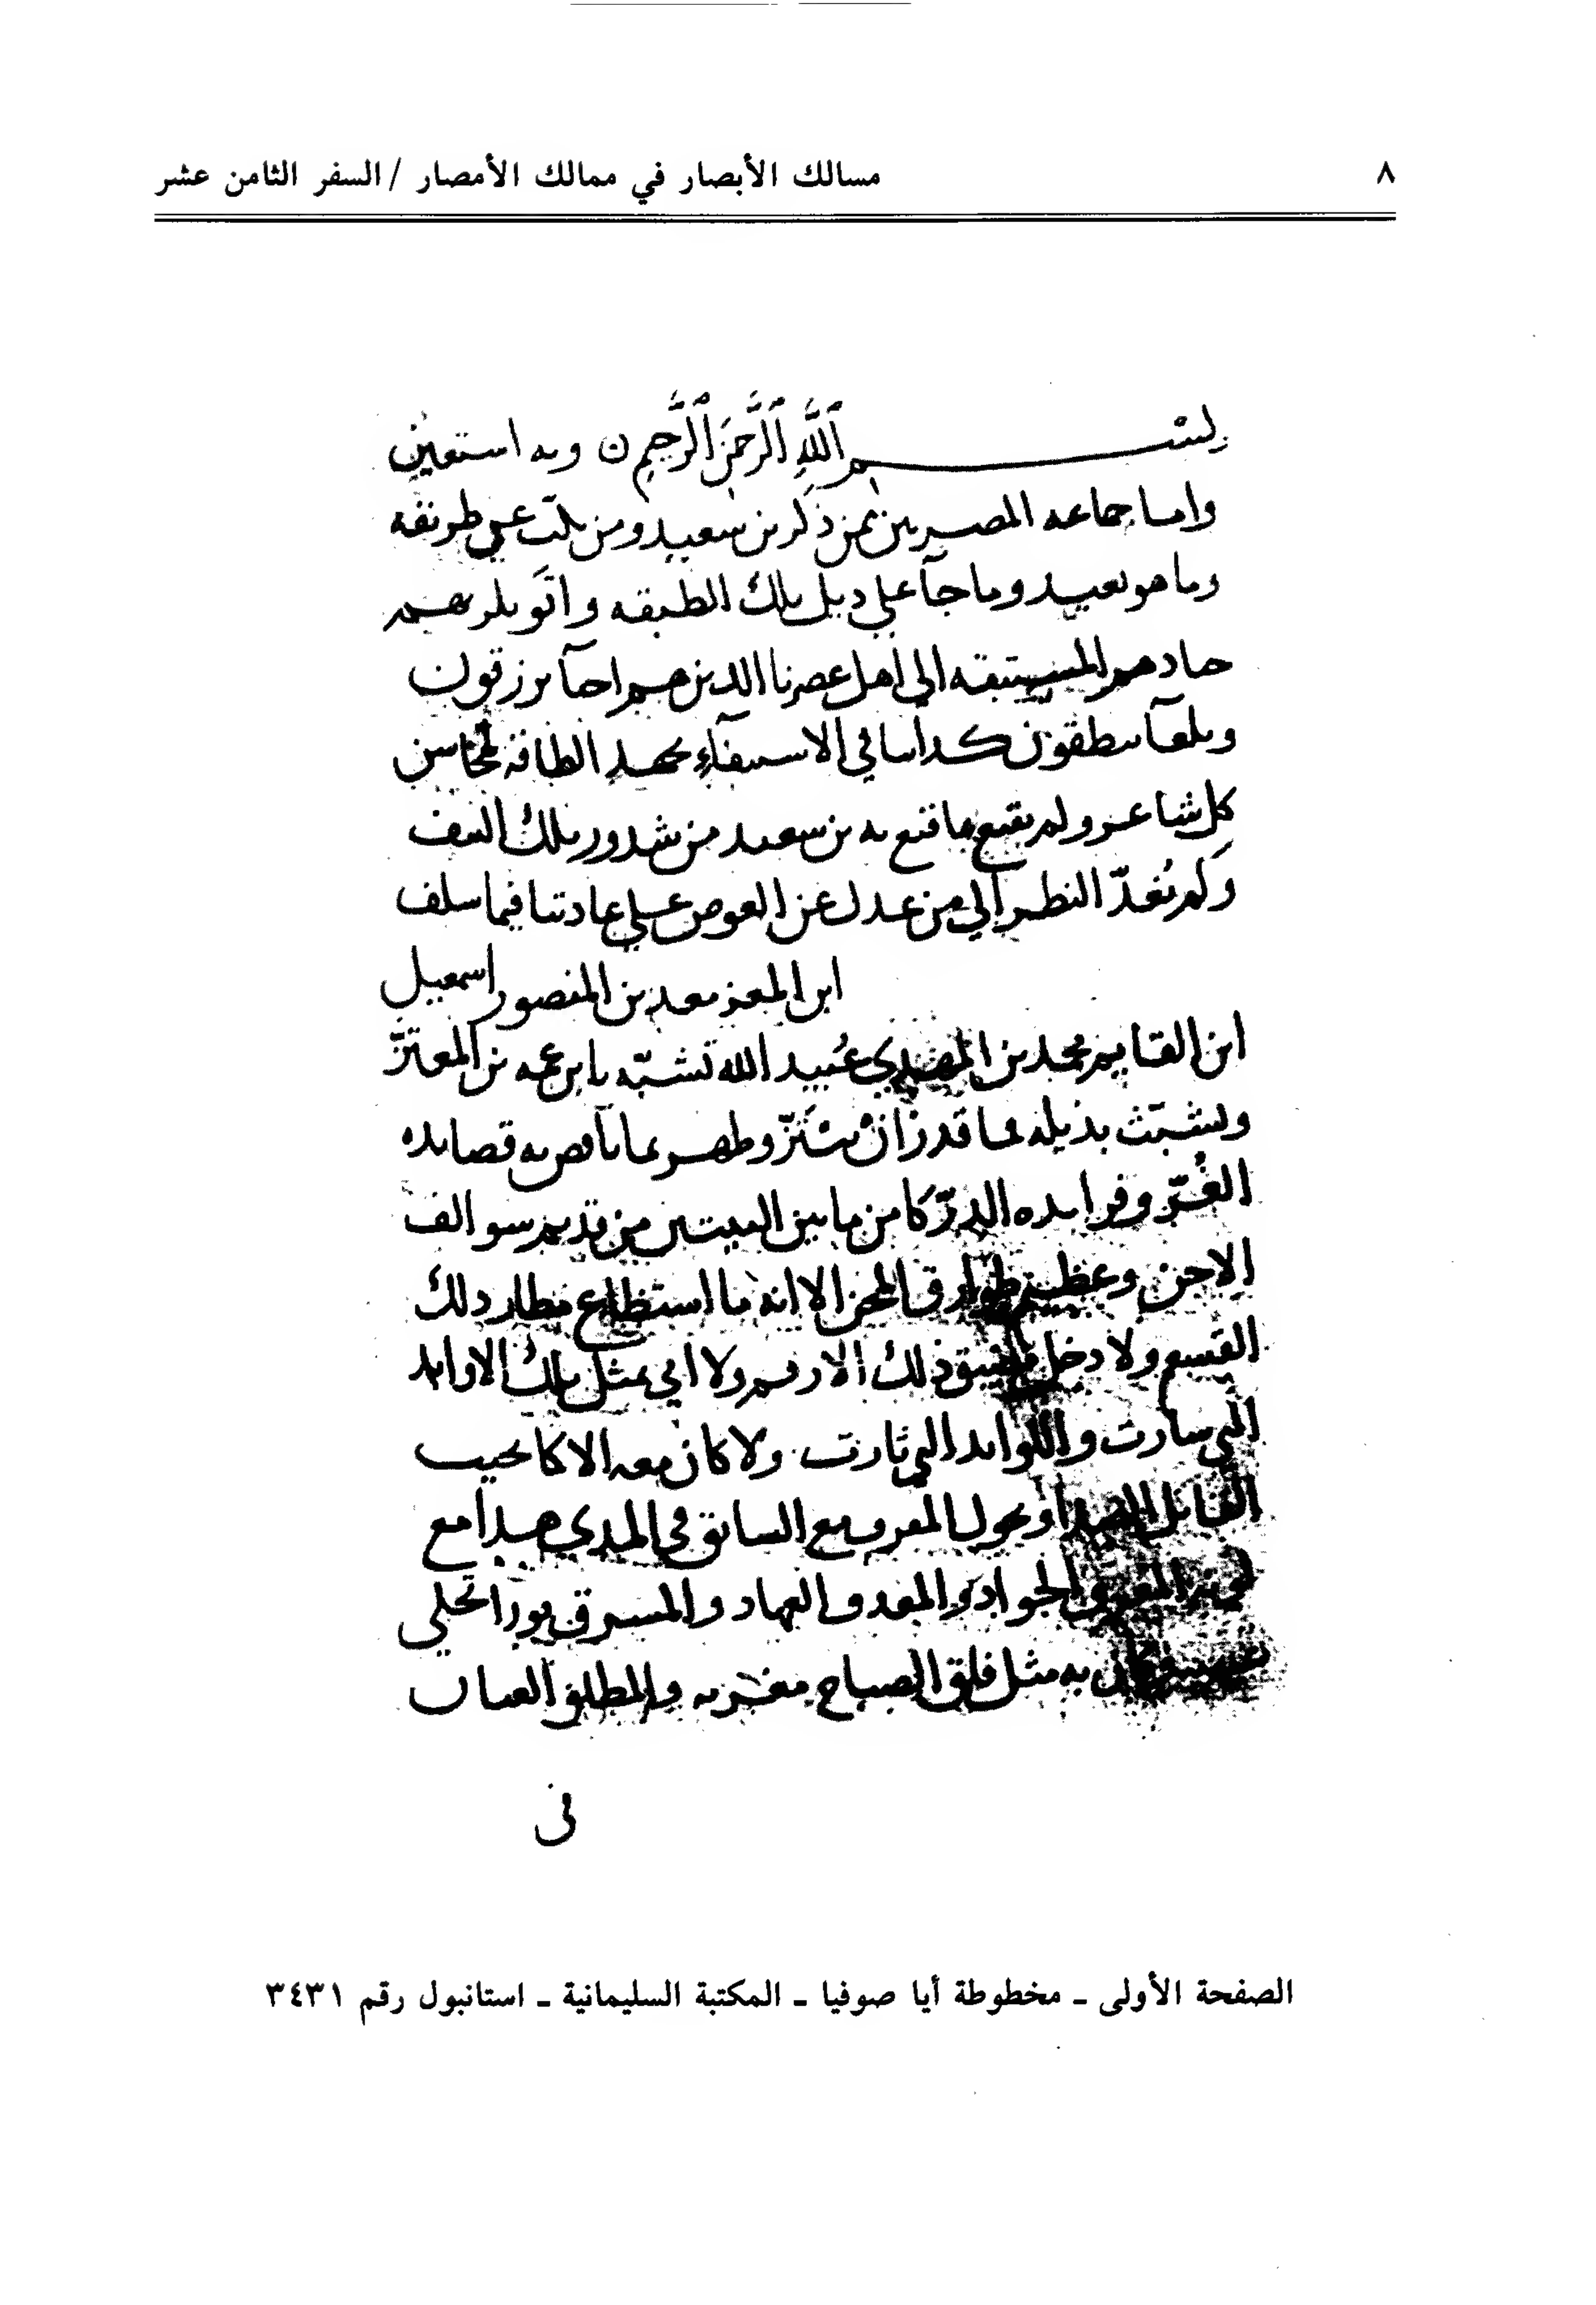 ٨
مسالك الأبصار في ممالك الأمصار / السفر الثامن عشر
بسم الله الرحمن الرحيم وبه استعين
واما جماعه المصريين ممن ذكر بن سعيد ومن على طريقه
وما هو ببعيد وما جآ على ذيل تلك الطبقه واتو بلو هم
المستبقه الى اهل عصرنا الذين هم احيآ يرزقون
وبلغآ ينطقون كدابنا في الاستيفآء بجهد الطاقة لمحاسن
كل شاعر ولم نقنع بما قنع به بن سعيد من شذور تلك
ولم نعد النظر الى من عدل عن الغوص على عادتنا فيما سلف
ابن المعز معد بن المنصور اسمعيل
ابن القايم محمد بن المهدي عبيد الله تشبه بابن عمه بن المعتز
وتشبث بذيله لما قدر ان يبتز وظهر بما ناقص به قصايده
الغر وفرايده الدر كامن ما بين البيتين من قديم سوالف
الاحن وعظيم طوارق المحن الا انه ما استطاع مطار ذلك
ولا دخل مضيق ذلك الارقم ولا اتى بمثل تلك الاوابد
التي سارت التي ثارت ولا كان معه الا كالحبيب
المعرف مع السابق في المدى هذا مع
والجواد والعهاد والمسرق نورا تجلى
به مثل فلق الصباح مغربه والمطلق العنان
فى
الصفحة الأولى ـ مخطوطة أيا صوفيا ـ المكتبة السليمانية ـ استانبول رقم ٣٤٣١